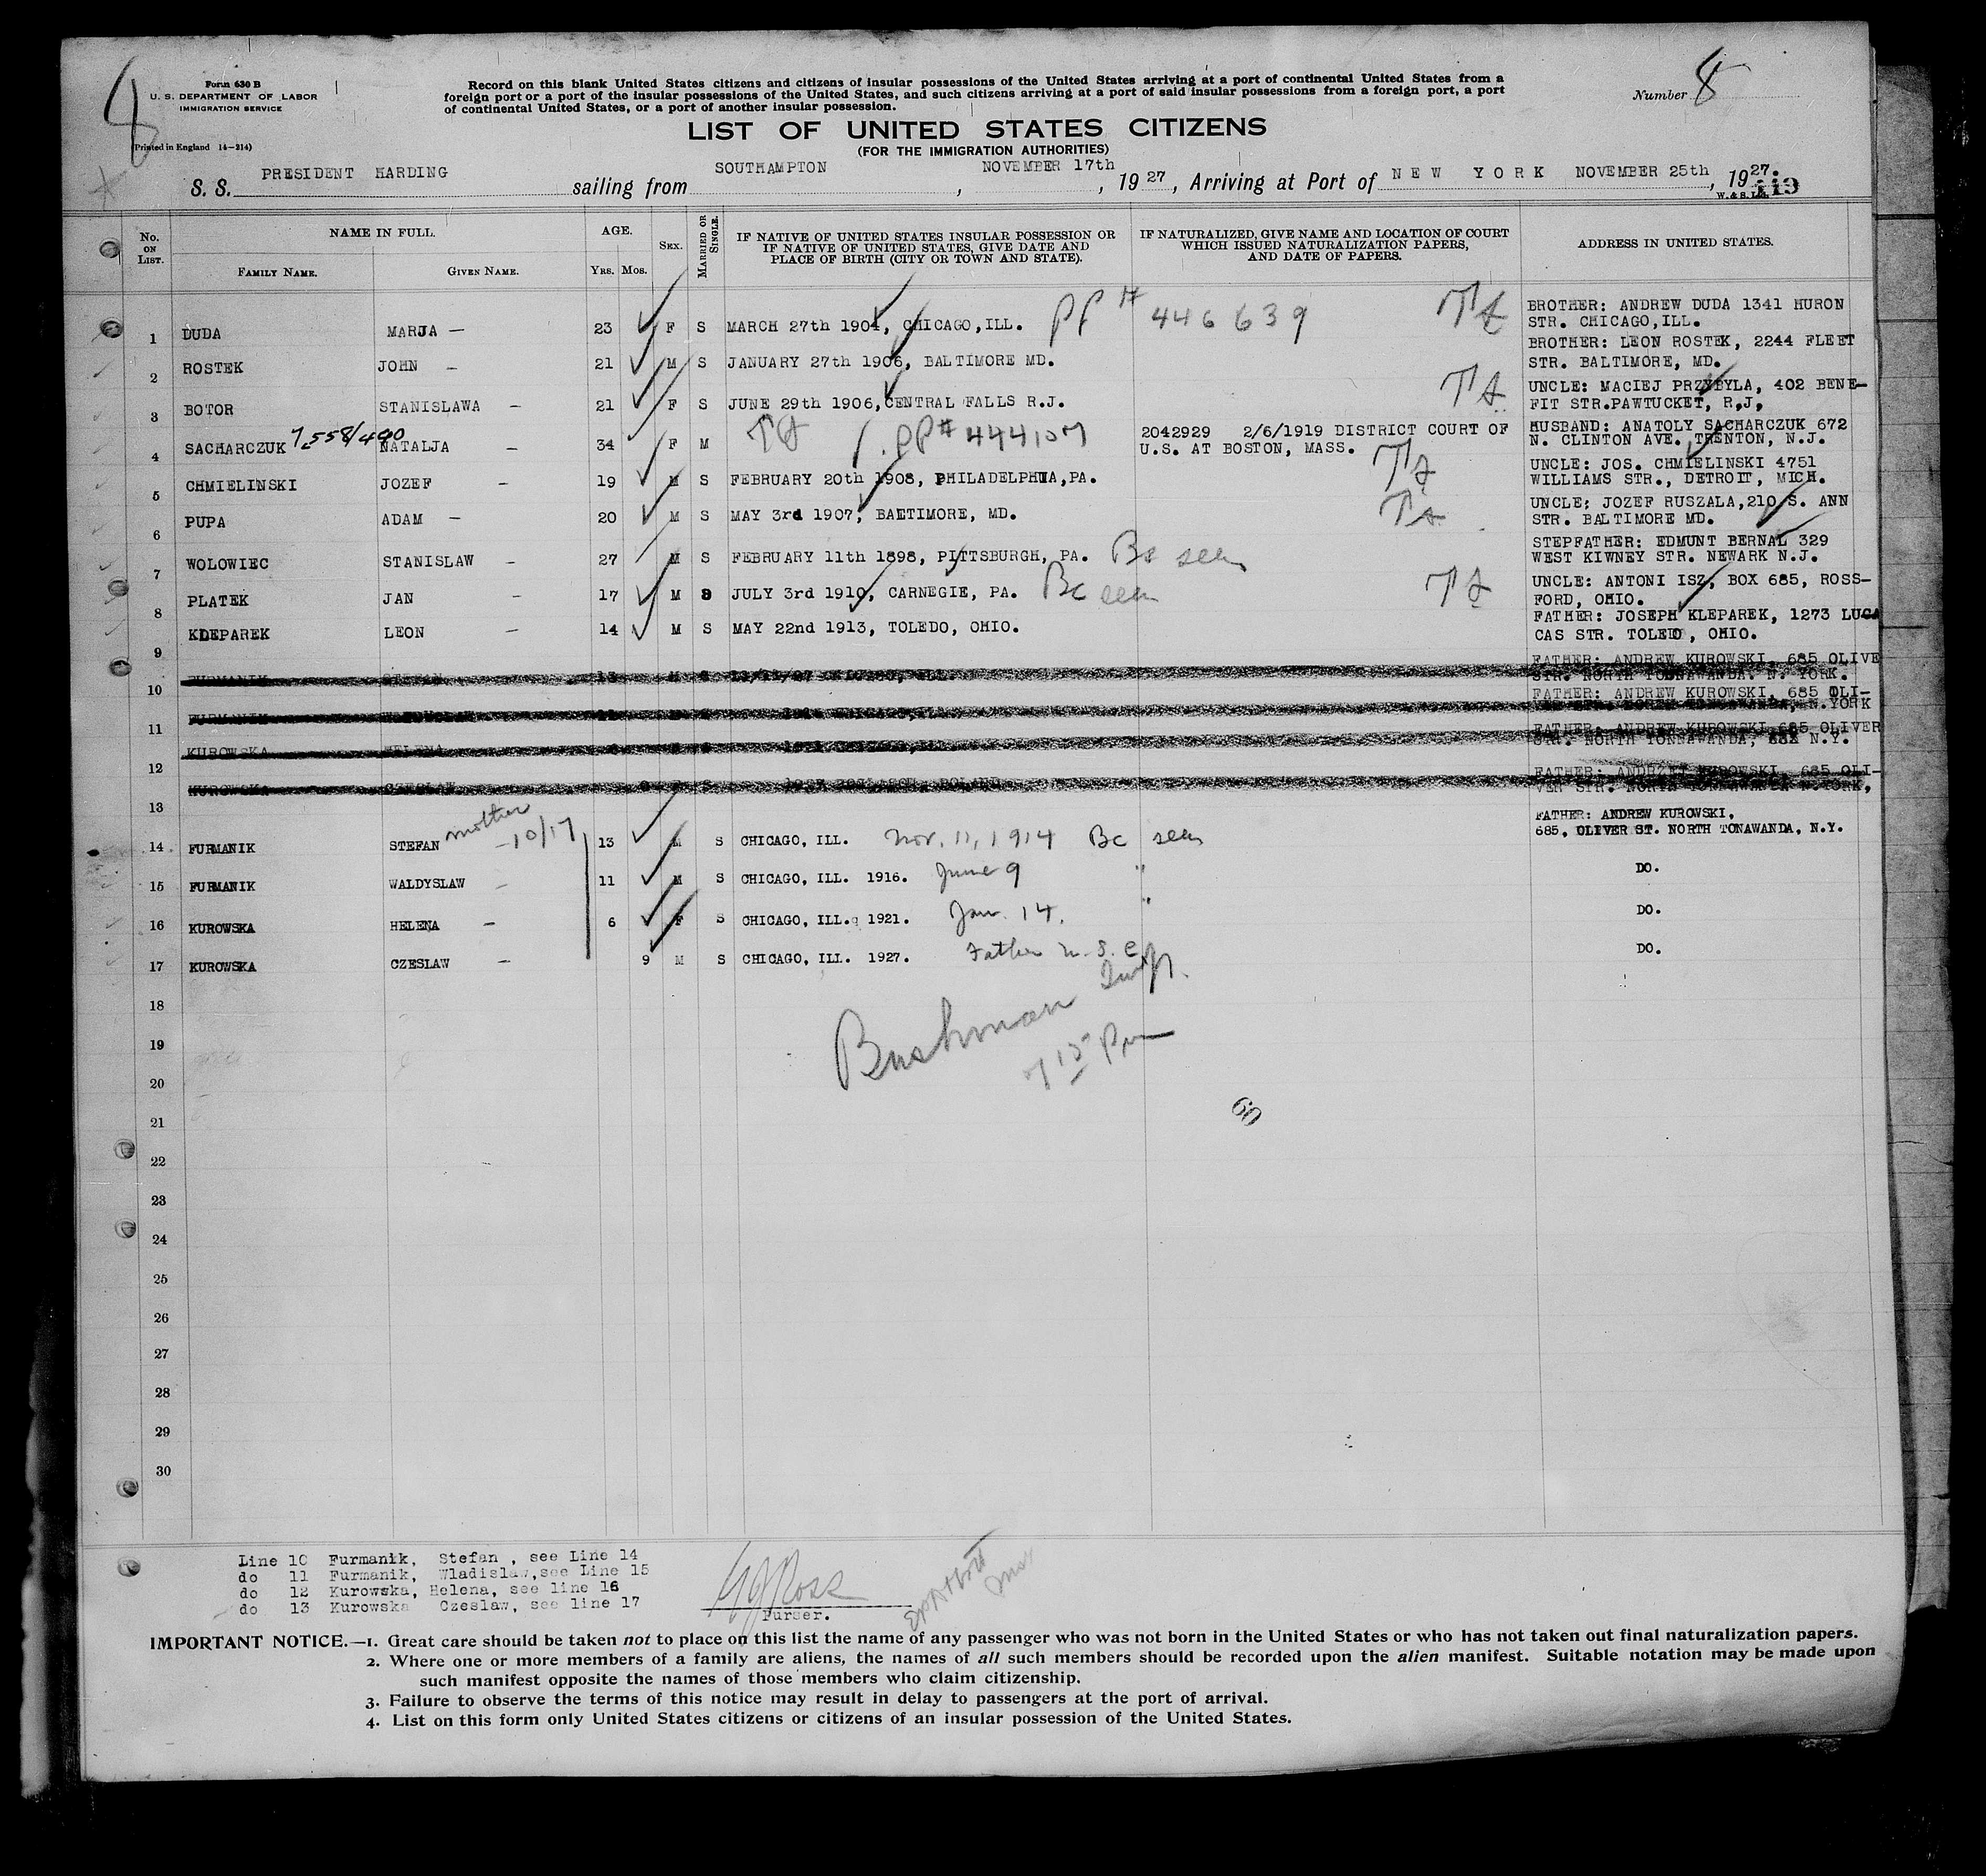 8
Form 630 B
U. S. DEPARTMENT OF LABOR
IMMIGRATION SERVICE
(Printed in England 14-214)
Record on this blank United States citizens and citizens of insular possessions of the United States arriving at a port of continental United States from a
foreign port or a port of the insular possessions of the United States, and such citizens arriving at a port of said insular possessions from a foreign port, a port
of continental United States, or a port of another insular possession.
Number 8
LIST OF UNITED STATES CITIZENS
(FOR THE IMMIGRATION AUTHORITIES)
S. S. PRESIDENT HARDING sailing from SOUTHAMPTON, NOVEMBER 17th, 1927, Arriving at Port of NEW YORK NOVEMBER 25th, 1927.
119
No. ON LIST. NAME IN FULL. FAMILY NAME. GIVEN NAME. AGE. YRS. MOS. SEX. MARRIED OR SINGLE. IF NATIVE OF UNITED STATES INSULAR POSSESSION OR IF NATIVE OF UNITED STATES, GIVE DATE AND PLACE OF BIRTH (CITY OR TOWN AND STATE). IF NATURALIZED, GIVE NAME AND LOCATION OF COURT WHICH ISSUED NATURALIZATION PAPERS, AND DATE OF PAPERS. ADDRESS IN UNITED STATES.
1 DUDA MARJA — 23 F S MARCH 27th 1904, CHICAGO, ILL. PP # 446639 BROTHER: ANDREW DUDA 1341 HURON
STR. CHICAGO, ILL.
2 ROSTEK JOHN — 21 M S JANUARY 27th 1906, BALTIMORE MD. BROTHER: LEON ROSTEK, 2244 FLEET
STR. BALTIMORE, MD.
3 BOTOR STANISLAWA — 21 F S JUNE 29th 1906, CENTRAL FALLS R.J. UNCLE: MACIEJ PRZYBYLA, 402 BENE-
FIT STR.PAWTUCKET, R,J,
4 SACHARCZUK 7558/490 NATALJA — 34 F M PP# 444107 2042929 2/6/1919 DISTRICT COURT OF HUSBAND: ANATOLY SACHARCZUK 672
U.S. AT BOSTON, MASS. N. CLINTON AVE. TRENTON, N.J.
5 CHMIELINSKI JOZEF — 19 M S FEBRUARY 20th 1908, PHILADELPHIA, PA. UNCLE: JOS. CHMIELINSKI 4751
WILLIAMS STR., DETROIT, MICH.
6 PUPA ADAM — 20 M S MAY 3rd 1907, BALTIMORE, MD. UNCLE; JOZEF RUSZALA, 210 S. ANN
STR. BALTIMORE MD.
7 WOLOWIEC STANISLAW — 27 M S FEBRUARY 11th 1898, PITTSBURGH, PA. Bc seen STEPFATHER: EDMUNT BERNAL 329
WEST KIWNEY STR. NEWARK N.J.
8 PLATEK JAN — 17 M S JULY 3rd 1910, CARNEGIE, PA. Bc seen UNCLE: ANTONI ISZ, BOX 685, ROSS-
FORD, OHIO.
9 KLEPAREK LEON — 14 M S MAY 22nd 1913, TOLEDO, OHIO. FATHER: JOSEPH KLEPAREK, 1273 LUCA
CAS STR. TOLEDO, OHIO.
10 FURMANIK STEFAN 13 M S FATHER: ANDREW KUROWSKI, 685 OLIVE
STR. NORTH TONNAWANDA. N. YORK.
11 FURMANIK FATHER: ANDREW KUROWSKI, 685 OLI-
VER STR. NORTH TONNAWANDA, N.YORK
12 KUROWSKA HELENA FATHER: ANDREW KUROWSKI 685 OLIVER
STR. NORTH TONNAWANDA, N.Y.
13 KUROWSKA CZESLAW 9 S POLAND FATHER: ANDRZEJ KUROWSKI, 685 OLI-
VER STR. NORTH TONNAWANDA N.YORK,
14 FURMANIK STEFAN mother — 10/17 13 M S CHICAGO, ILL. Nov. 11, 1914 Bc seen FATHER: ANDREW KUROWSKI,
685, OLIVER ST. NORTH TONAWANDA, N.Y.
15 FURMANIK WALDYSLAW — 11 M S CHICAGO, ILL. 1916. June 9 " DO.
16 KUROWSKA HELENA — 6 F S CHICAGO, ILL. 1921. Jan. 14. " DO.
17 KUROWSKA CZESLAW — 9 M S CHICAGO, ILL. 1927. Father U.S.C. DO.
18
Bushman Insp.
19
7 15 Pm
20
60
21
22
23
24
25
26
27
28
29
30
Line 10 Furmanik, Stefan , see Line 14
do 11 Furmanik, Wladislaw, see Line 15
do 12 Kurowska, Helena, see line 16
do 13 Kurowska Czeslaw, see line 17
Ross
Purser.
IMPORTANT NOTICE.—1. Great care should be taken not to place on this list the name of any passenger who was not born in the United States or who has not taken out final naturalization papers.
2. Where one or more members of a family are aliens, the names of all such members should be recorded upon the alien manifest. Suitable notation may be made upon
such manifest opposite the names of those members who claim citizenship.
3. Failure to observe the terms of this notice may result in delay to passengers at the port of arrival.
4. List on this form only United States citizens or citizens of an insular possession of the United States.